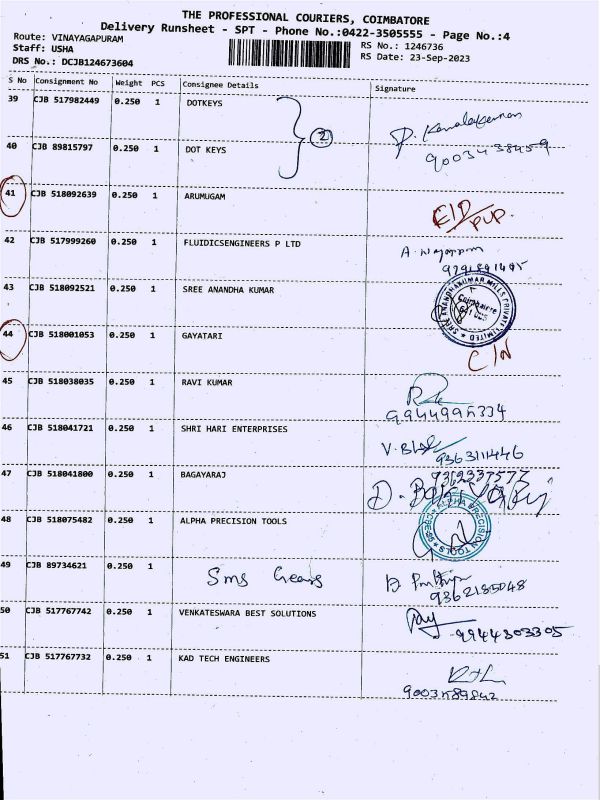 THE PROFESSIONAL COURIERS, COIMBATORE
Delivery Runsheet - SPT - Phone No.:0422-3505555 - Page No.:4
Route: VINAYAGAPURAM RS No.: 1246736
Staff: USHA RS Date: 23-Sep-2023
DRS No.: DCJB124673604
S No Consignment No Weight PCS Consignee Details Signature
39 CJB 517982449 0.250 1 DOTKEYS
2
40 CJB 89815797 0.250 1 DOT KEYS
41 CJB 518092639 0.250 1 ARUMUGAM
42 CJB 517999260 0.250 1 FLUIDICSENGINEERS P LTD
43 CJB 518092521 0.250 1 SREE ANANDHA KUMAR
44 CJB 518001053 0.250 1 GAYATARI
C/N
45 CJB 518038035 0.250 1 RAVI KUMAR
46 CJB 518041721 0.250 1 SHRI HARI ENTERPRISES
9363111446
47 CJB 518041800 0.250 1 BAGAYARAJ
48 CJB 518075482 0.250 1 ALPHA PRECISION TOOLS
ALPHA PRECISION TOOLS
49 CJB 89734621 0.250 1 Sms Gears
9362185048
50 CJB 517767742 0.250 1 VENKATESWARA BEST SOLUTIONS
9944303305
51 CJB 517767732 0.250 1 KAD TECH ENGINEERS